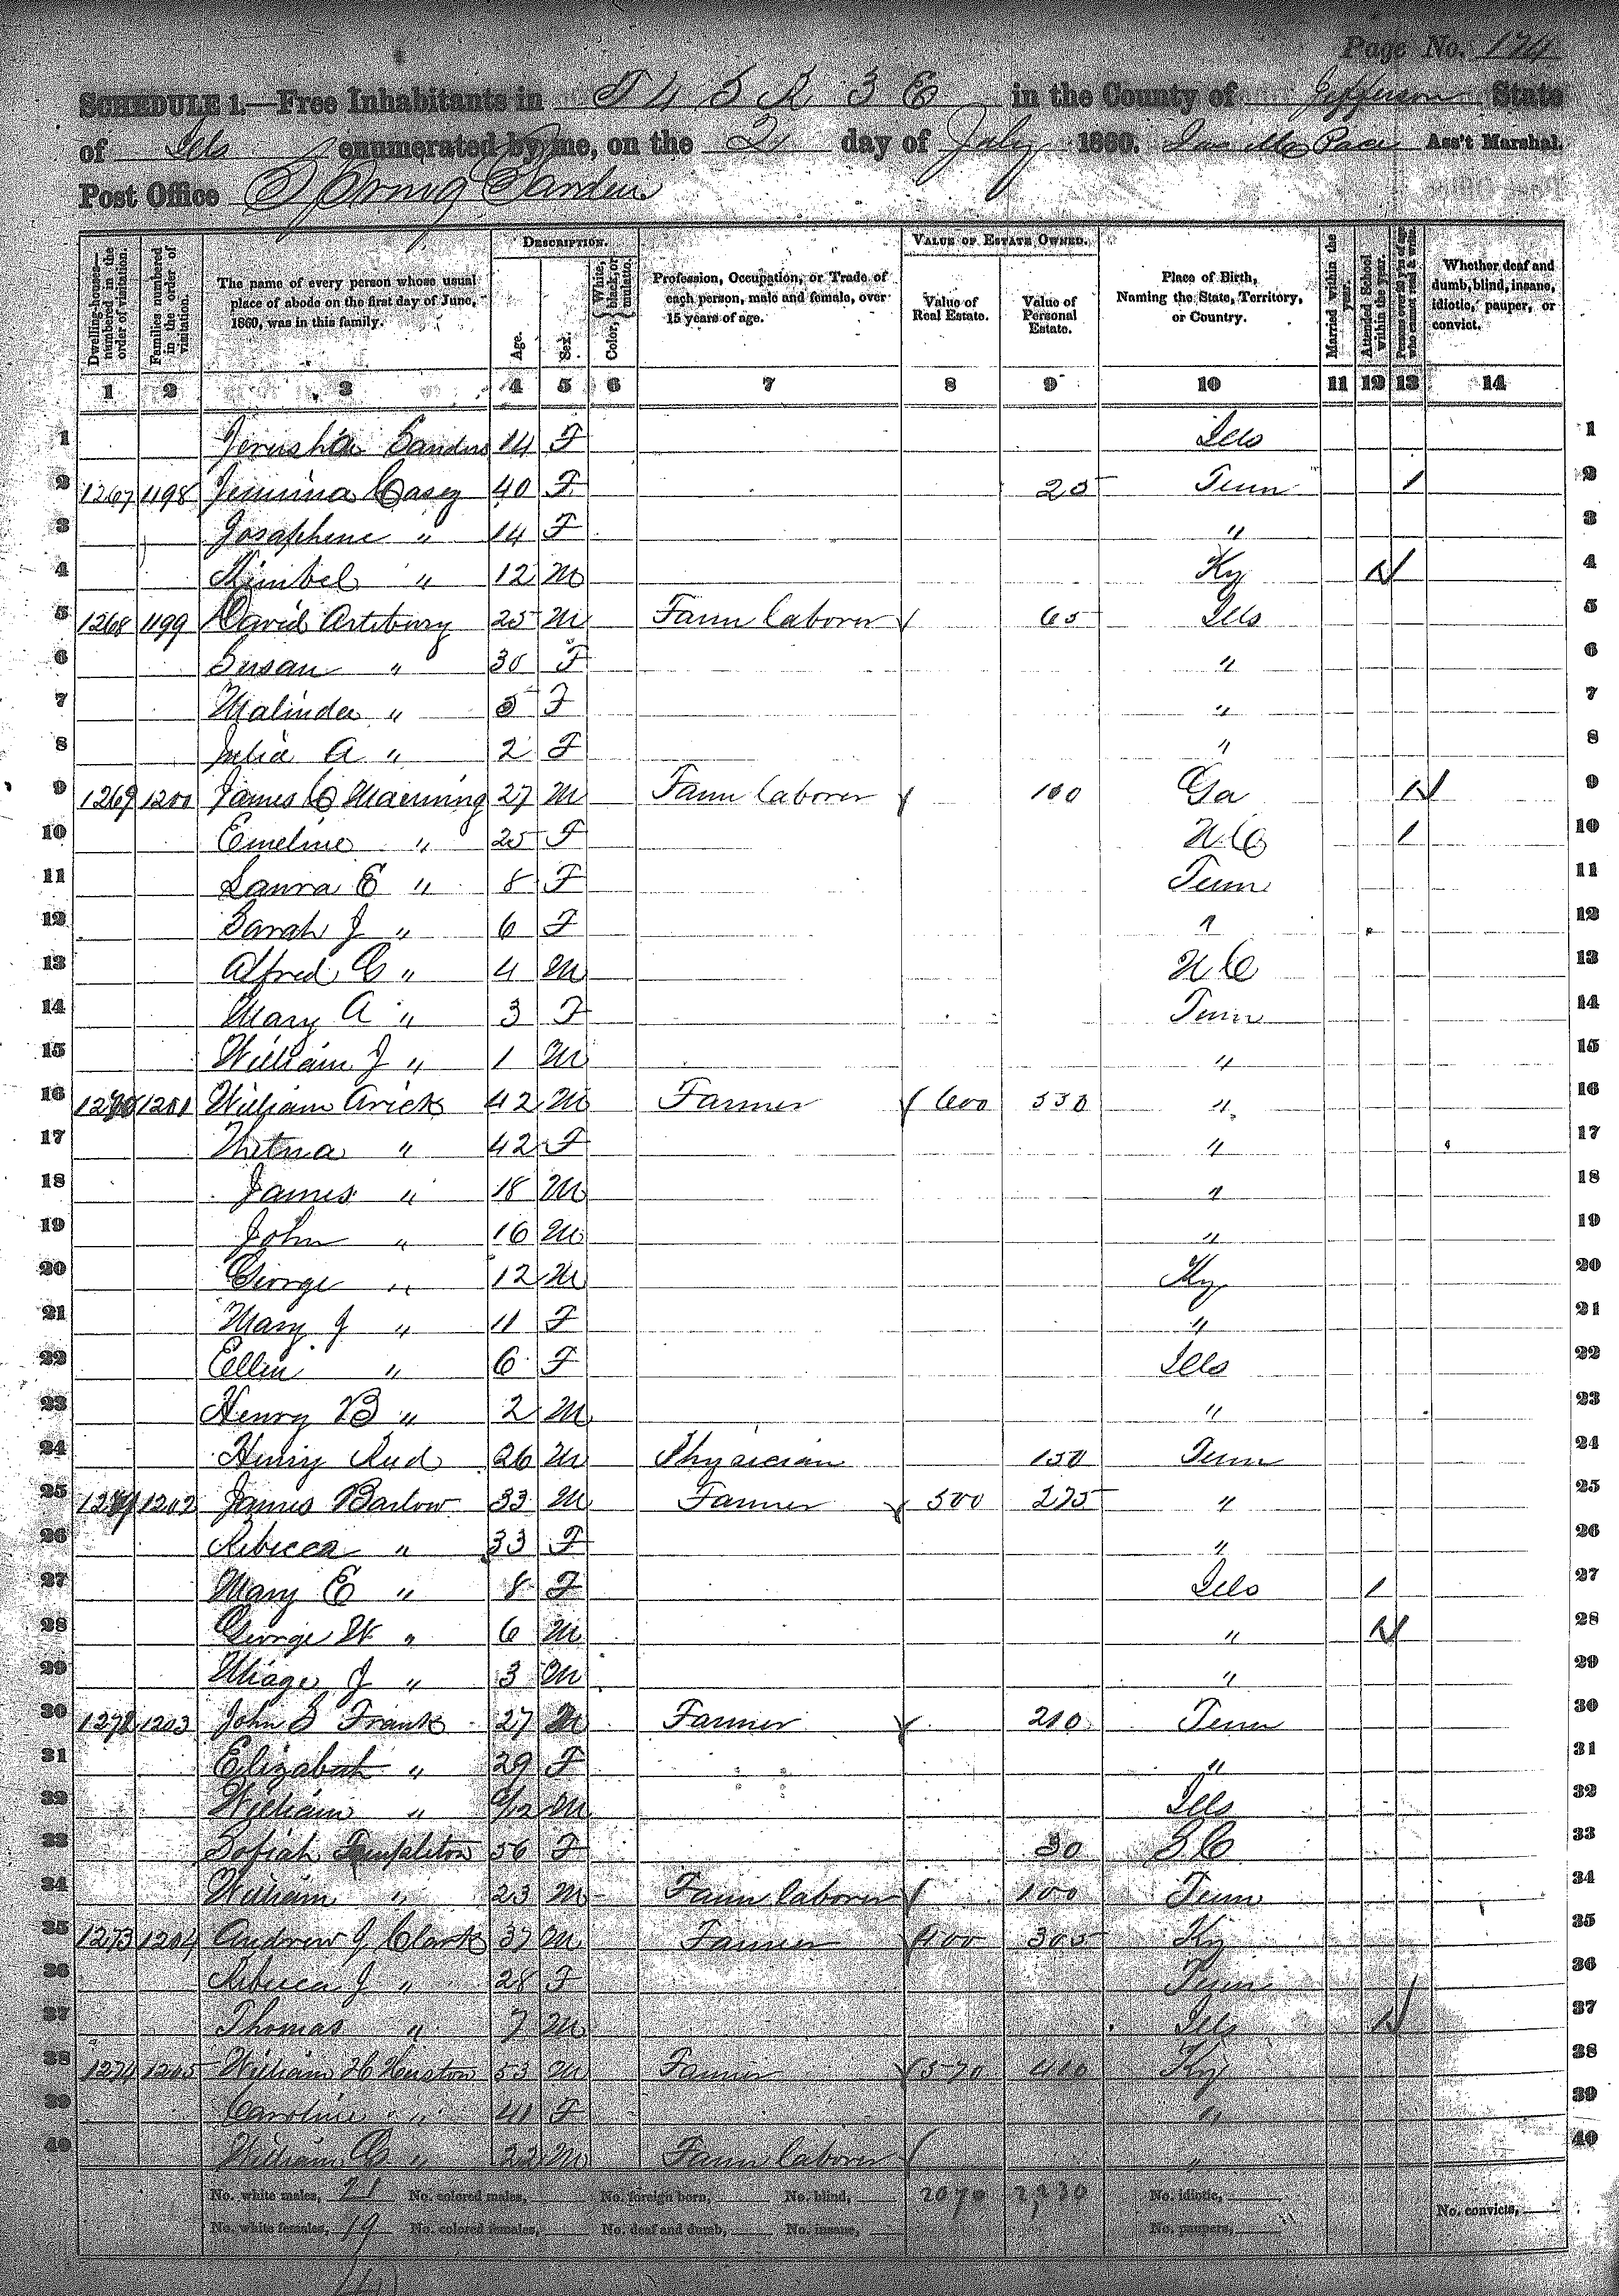 Page No. 174
SCHEDULE 1.—Free Inhabitants in T 4 S R 3 E in the County of Jefferson State
of Ills enumerated by me, on the 21 day of July 1860. Pace Ass't Marshal.
Post Office Spring Garden
Dwelling-house—numbered in the order of visitation.
Families numbered in the order of visitation.
The name of every person whose usual place of abode on the first day of June, 1860, was in this family.
DESCRIPTION.
Age.
Sex.
Color, White, black, or mulatto.
Profession, Occupation, or Trade of each person, male and female, over 15 years of age.
VALUE OF ESTATE OWNED.
Value of Real Estate.
Value of Personal Estate.
Place of Birth, Naming the State, Territory, or Country.
Married within the year.
Attended School within the year.
Persons over 20 y'rs of age who cannot read & write.
Whether deaf and dumb, blind, insane, idiotic, pauper, or convict.
1 2 3 4 5 6 7 8 9 10 11 12 13 14
1 Jerusha Sanders 14 F Ills 1
2 1267 1198 Jemima Casey 40 F 25 Tenn / 2
3 Josephene " 14 F " 3
4 Kimbel " 12 M Ky / 4
5 1268 1199 David Artebury 25 M Farm laborer 65 Ills 5
6 Susan " 30 F " 6
7 Malinda " 5 F " 7
8 Julia A " 2 F " 8
9 1269 1200 James C Manning 27 M Farm laborer 100 Ga / 9
10 Emeline " 25 F N.C / 10
11 Laura E " 8 F Tenn 11
12 Sarah J " 6 F " 12
13 Alfred C " 4 M N C 13
14 Mary A " 3 F Tenn 14
15 William J " 1 M " 15
16 1270 1201 William Arick 42 M Farmer 600 530 " 16
17 " 42 F " 17
18 James " 18 M " 18
19 John " 16 M " 19
20 George " 12 M Ky 20
21 Mary J " 11 F " 21
22 Ellen " 6 F Ills 22
23 Henry B " 2 M " 23
24 Henry Rud 26 M Physician 150 Tenn 24
25 1271 1202 James Barlow 33 M Farmer 500 275 " 25
26 Rebecca " 33 F " 26
27 Mary E " 8 F Ills / 27
28 George W " 6 M " / 28
29 J " 3 M " 29
30 1272 1203 John S Frank 27 M Farmer 210 Tenn 30
31 Elizabeth " 29 F " 31
32 William " /12 M Ills 32
33 Sofiah Templeton 56 F 30 S C 33
34 William " 23 M Farm laborer 100 Tenn 34
35 1273 1204 Andrew J Clark 37 M Farmer 400 305 Ky 35
36 Rebecca J " 28 F Tenn 36
37 Thomas " 7 M Ills / 37
38 1274 1205 William H Heuston 53 M Farmer 570 410 Ky 38
39 Caroline " 41 F " 39
40 William C " 22 M Farm laborer " 40
No. white males, 21 No. colored males, No. foreign born, No. blind, 2070 2,230 No. idiotic,
No. white females, 19 No. colored females, No. deaf and dumb, No. insane, No. paupers, No. convicts,